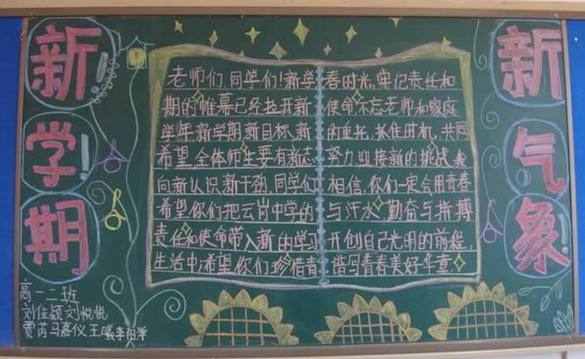 新学期
老师们同学们!新学
期的帷幕已经拉开新
学年新学期新目标、新
希望全体师生要有新志
向新认识新干劲,同学们
希望你们把云岗中学的
责任和使命带入新的学习
生活中,希望你们珍惜青
春时光,牢记责任和
使命不忘老师和家庭
的重托,抓住时机,共同
努力迎接新的挑战,我
相信,你们一定会用青春
与汗水,勤奋与拼搏
开创自己光明的前程,
谱写青春美好华章
新气象
高一二班
刘佳颖刘悦
贾芮马嘉仪王